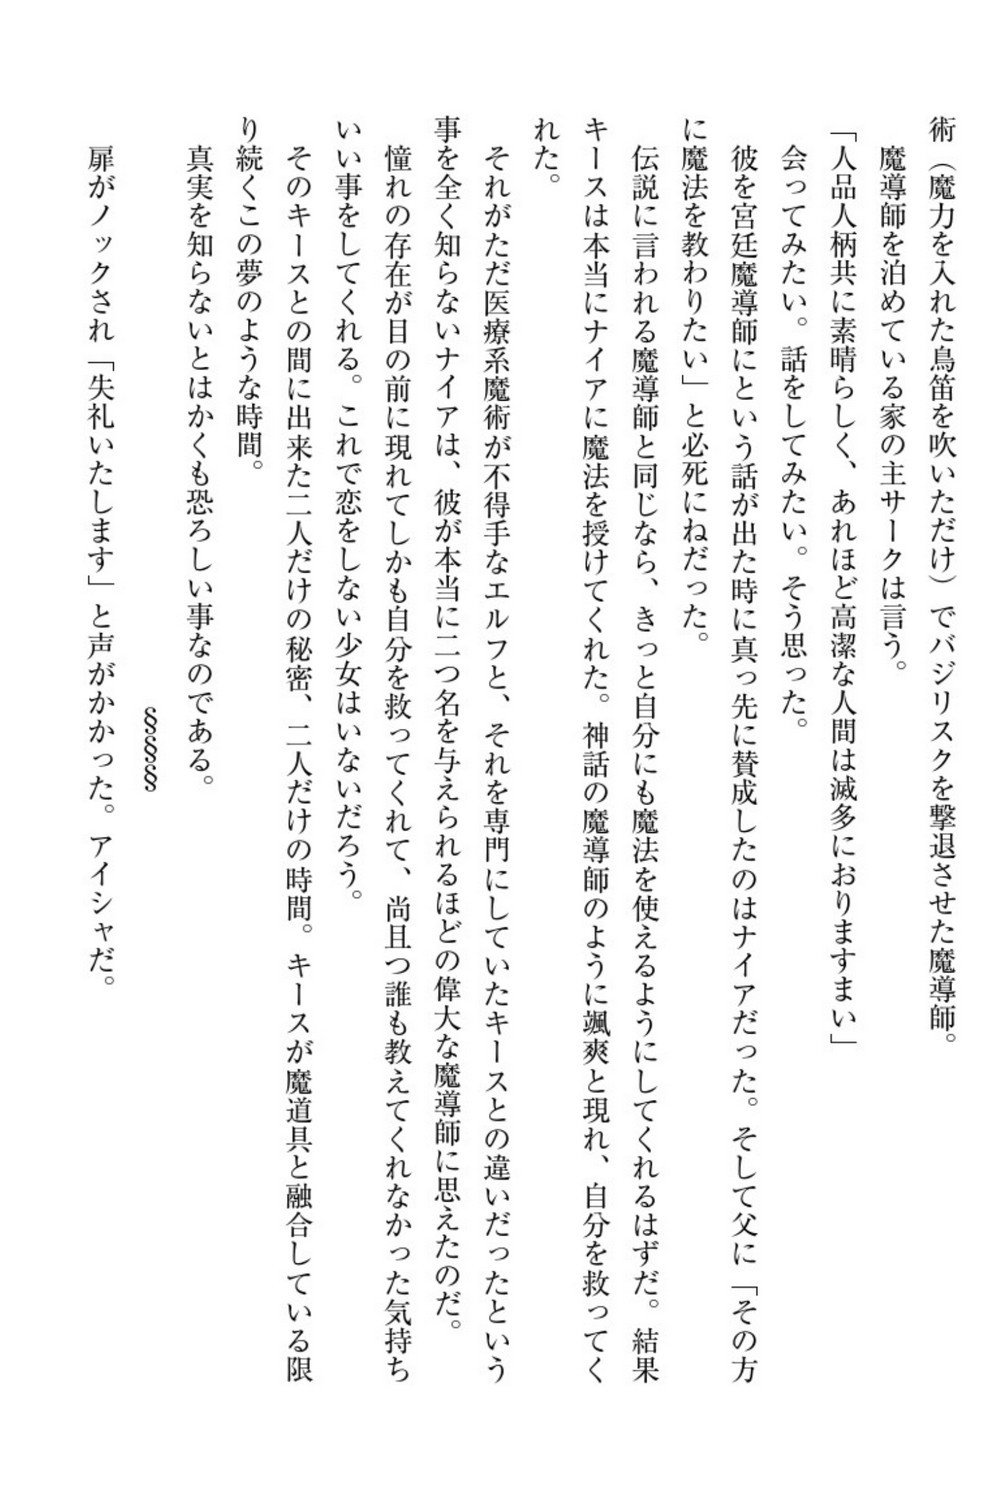 術（魔力を入れた鳥笛を吹いただけ）でバジリスクを撃退させた魔導師。
魔導師を泊めている家の主サークは言う。
「人品人柄共に素晴らしく、あれほど高潔な人間は滅多におりますまい」
会ってみたい。話をしてみたい。そう思った。
彼を宮廷魔導師にという話が出た時に真っ先に賛成したのはナイアだった。そして父に「その方
に魔法を教わりたい」と必死にねだった。
伝説に言われる魔導師と同じなら、きっと自分にも魔法を使えるようにしてくれるはずだ。結果
キースは本当にナイアに魔法を授けてくれた。神話の魔導師のように颯爽と現れ、自分を救ってく
れた。
それがただ医療系魔術が不得手なエルフと、それを専門にしていたキースとの違いだったという
事を全く知らないナイアは、彼が本当に二つ名を与えられるほどの偉大な魔導師に思えたのだ。
憧れの存在が目の前に現れてしかも自分を救ってくれて、尚且つ誰も教えてくれなかった気持ち
いい事をしてくれる。これで恋をしない少女はいないだろう。
そのキースとの間に出来た二人だけの秘密、二人だけの時間。キースが魔道具と融合している限
り続くこの夢のような時間。
真実を知らないとはかくも恐ろしい事なのである。
§§§§
扉がノックされ「失礼いたします」と声がかかった。アイシャだ。